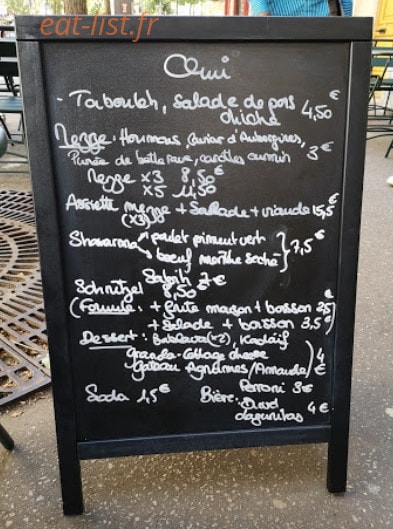 eat-list.fr
Omi
- Tabouleh, salade de pois chiche 4,50€
Mezze: Houmous, Caviar d'Aubergines,
Purée de betterave, carottes cumin 3€
Mezze x3 8,50€
x5 11,50
Assiette mezze + Salade + viande 15,5€
(x3)
Shawarma poulet piment vert
boeuf menthe séché 7,5€
Sabih 7€
Schnitzel 8,50
(Formule: + frite maison + boisson 2,5)
+ Salade + boisson 3,5€
Dessert: Baklava (x2), Kadaif
Granola-Cottage cheese 4€
Gâteau Agrumes/Amande
Soda 1,5€
Perroni 3€
Bière:
Lagunitas 4€